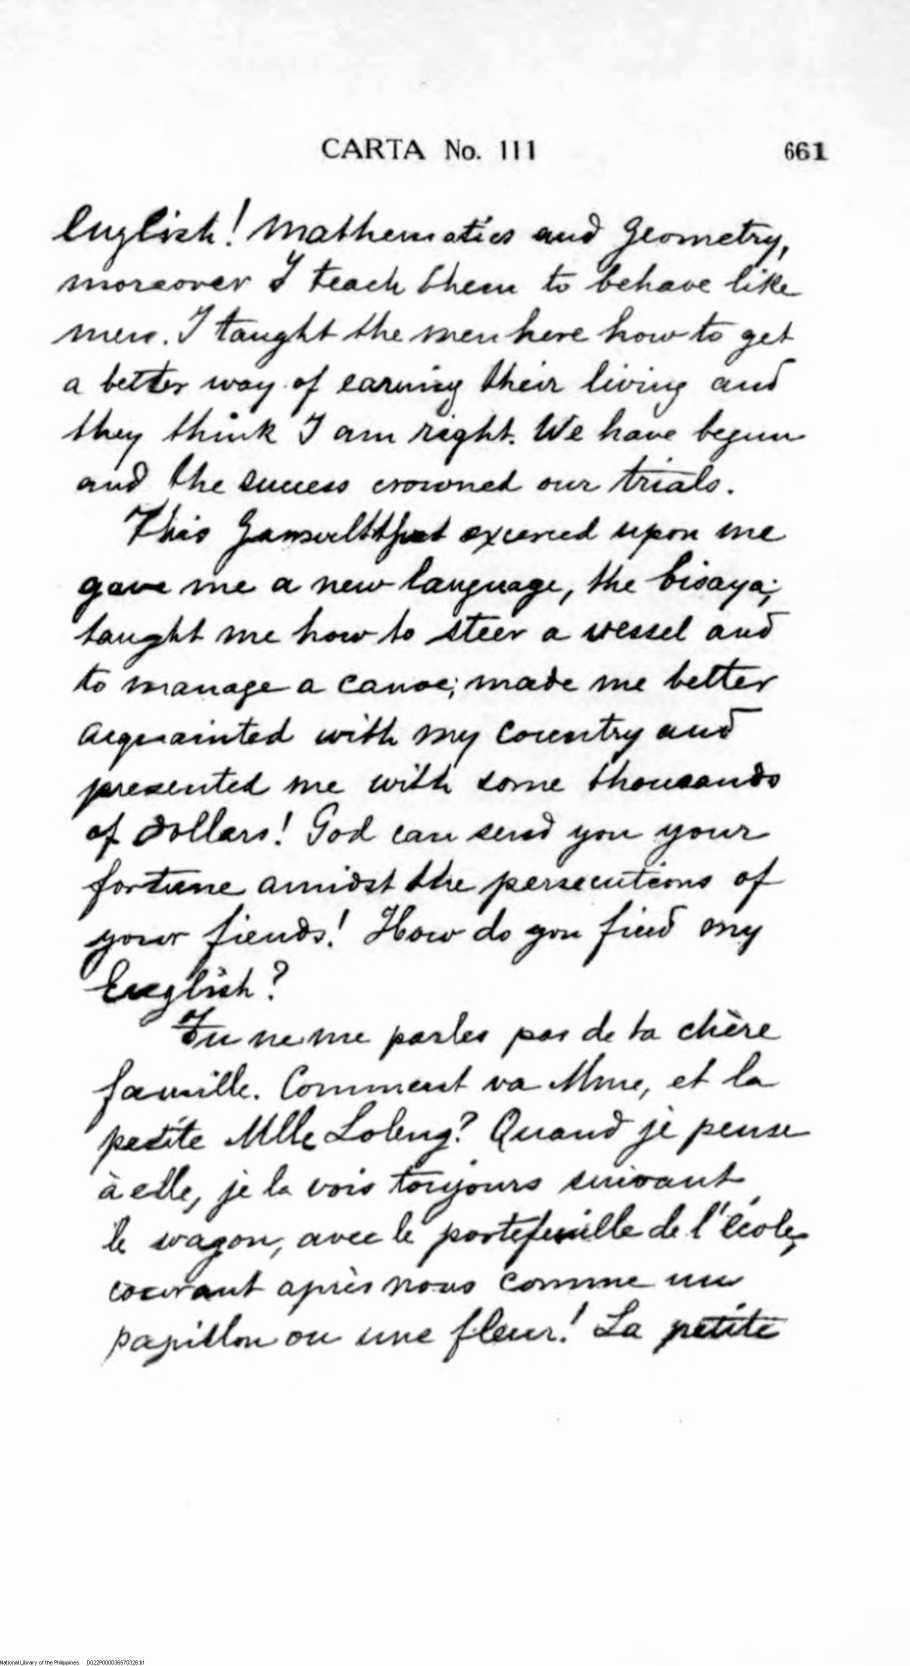 CARTA No. III 661
English! Mathematics and Geometry,
moreover I teach them to behave like
men. I taught the men here how to get
a better way of earning their living and
they think I am right. We have begun
and the success crowned our trials.
This that excerced upon me
gave me a new language, the bisaya;
taught me how to steer a vessel and
to manage a canoe; made me better
acquainted with my country and
presented me with some thousands
of dollars! God can send you your
fortune amidst the persecutions of
your fiends! How do you find my
English?
Tu ne me parles pas de ta chère
famille. Comment va Mme, et la
petite Mlle Loleng? Quand je pense
à elle, je la vois toujours suivant
le wagon, avec le portefeuille de l'école,
courant après nous comme un
papillon ou une fleur! La petite
National Library of the Philippines